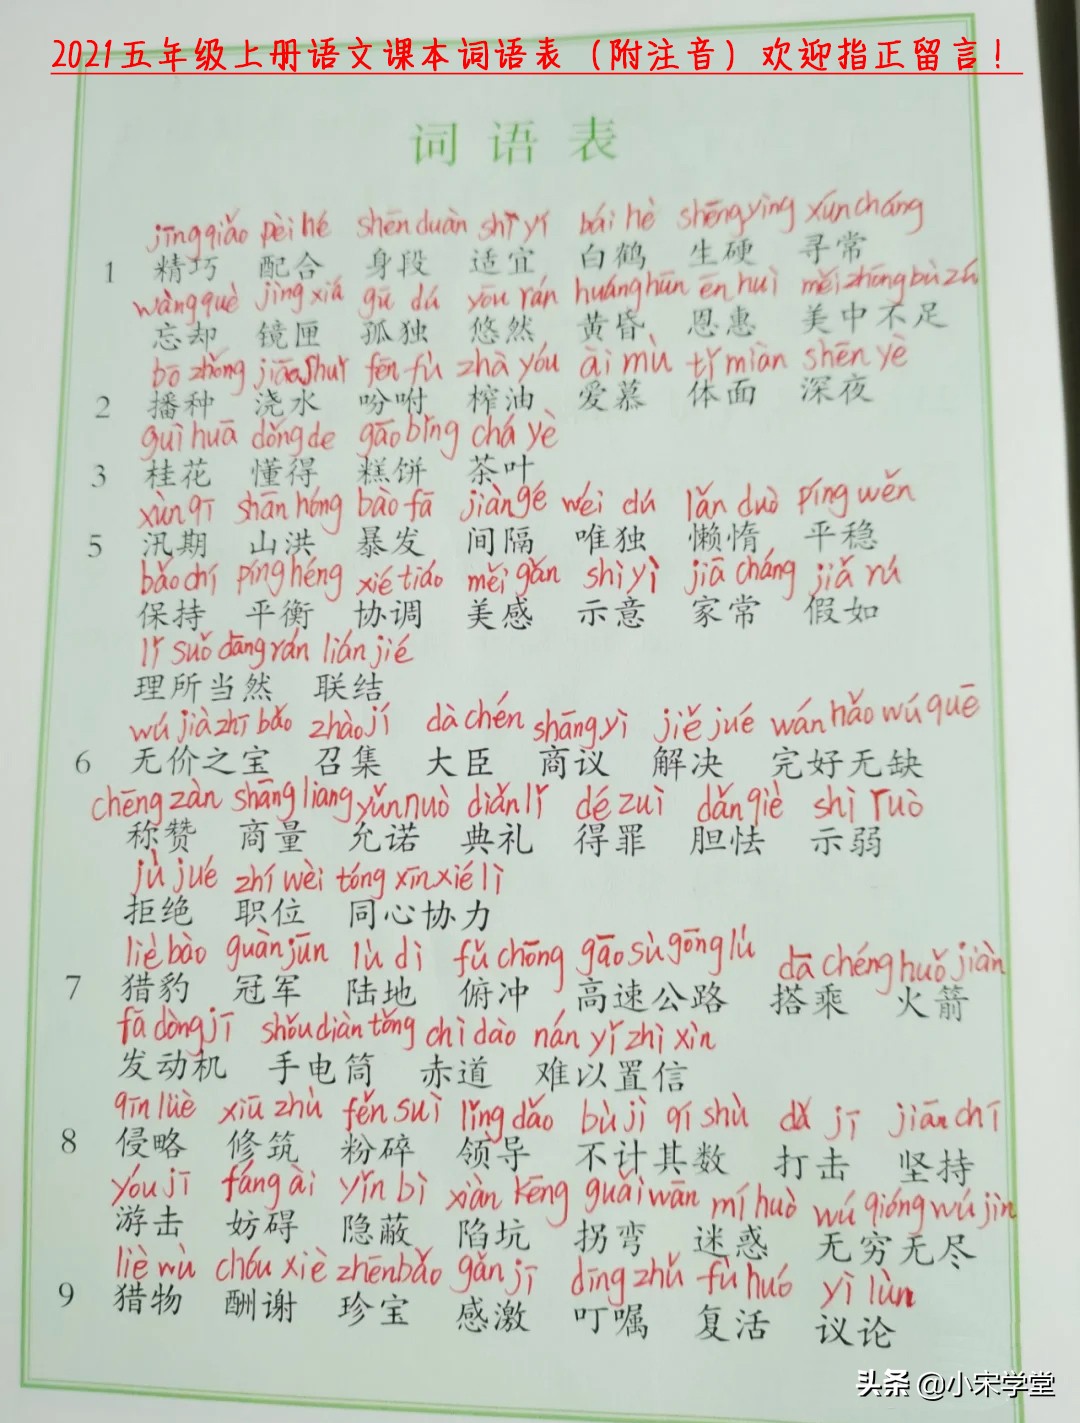 2021五年级上册语文课本词语表（附注音）欢迎指正留言！
词语表
jīngqiǎo pèi hé shēnduàn shì yí bái hè shēngyìng xúncháng
1 精巧 配合 身段 适宜 白鹤 生硬 寻常
wàngquè jìng xiá gū dú yōu rán huánghūn ēn huì měizhōngbùzú
忘却 镜匣 孤独 悠然 黄昏 恩惠 美中不足
bō zhǒng jiāoshuǐ fēn fù zhà yóu ài mù tǐ miàn shēn yè
2 播种 浇水 吩咐 榨油 爱慕 体面 深夜
guì huā dǒng de gāo bǐng chá yè
3 桂花 懂得 糕饼 茶叶
xùn qī shān hóng bào fā jiàn gé wéi dú lǎn duò píng wěn
5 汛期 山洪 暴发 间隔 唯独 懒惰 平稳
bǎo chí píng héng xié tiáo měi gǎn shì yì jiā cháng jiǎ rú
保持 平衡 协调 美感 示意 家常 假如
lǐ suǒ dāng rán lián jié
理所当然 联结
wú jià zhī bǎo zhào jí dà chén shāng yì jiě jué wán hǎo wú quē
6 无价之宝 召集 大臣 商议 解决 完好无缺
chēng zàn shāng liang yǔn nuò diǎn lǐ dé zuì dǎn qiè shì ruò
称赞 商量 允诺 典礼 得罪 胆怯 示弱
jù jué zhí wèi tóng xīn xié lì
拒绝 职位 同心协力
liè bào guàn jūn lù dì fǔ chōng gāo sù gōng lù dā chéng huǒ jiàn
7 猎豹 冠军 陆地 俯冲 高速公路 搭乘 火箭
fā dòng jī shǒu diàn tǒng chì dào nán yǐ zhì xìn
发动机 手电筒 赤道 难以置信
qīn lüè xiū zhù fěn suì lǐng dǎo bù jì qí shù dǎ jī jiān chí
8 侵略 修筑 粉碎 领导 不计其数 打击 坚持
yóu jī fáng ài yǐn bì xiàn kēng guǎi wān mí huò wú qióng wú jìn
游击 妨碍 隐蔽 陷坑 拐弯 迷惑 无穷无尽
liè wù chóu xiè zhēn bǎo gǎn jī dīng zhǔ fù huó yì lùn
9 猎物 酬谢 珍宝 感激 叮嘱 复活 议论
头条 @小宋学堂